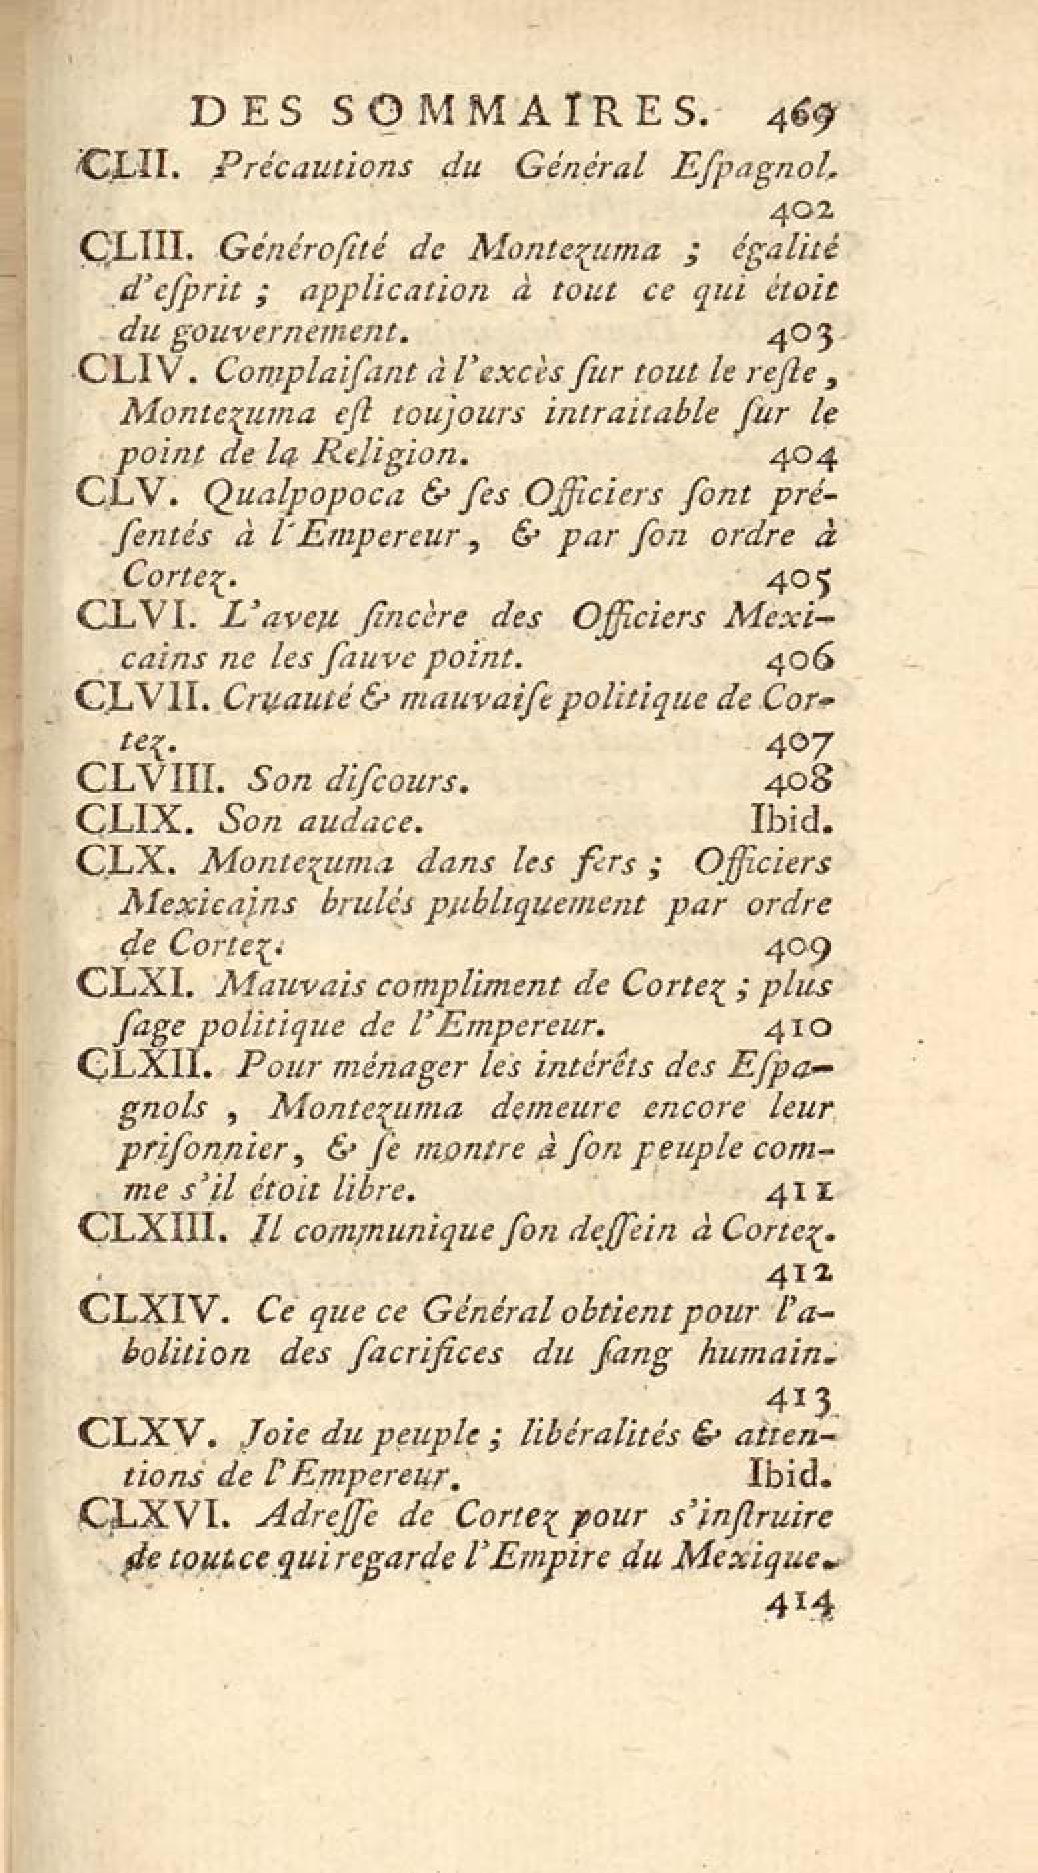 DES SOMMAIRES. 469
CLII. Précautions du Général Eſpagnol.
402
CLIII. Généroſité de Montezuma ; égalité
d'eſprit ; application à tout ce qui étoit
du gouvernement. 403
CLIV. Complaiſant à l'excès ſur tout le reſte ,
Montezuma eſt toujours intraitable ſur le
point de la Religion. 404
CLV. Qualpopoca & ſes Officiers ſont pré-
ſentés à l'Empereur , & par ſon ordre à
Cortez. 405
CLVI. L'aveu ſincère des Officiers Mexi-
cains ne les ſauve point. 406
CLVII. Cruauté & mauvaiſe politique de Cor-
tez. 407
CLVIII. Son diſcours. 408
CLIX. Son audace. Ibid.
CLX. Montezuma dans les fers ; Officiers
Mexicains brulés publiquement par ordre
de Cortez. 409
CLXI. Mauvais compliment de Cortez ; plus
ſage politique de l'Empereur. 410
CLXII. Pour ménager les intérêts des Eſpa-
gnols , Montezuma demeure encore leur
priſonnier , & ſe montre à ſon peuple com-
me s'il étoit libre. 411
CLXIII. Il communique ſon deſſein à Cortez.
412
CLXIV. Ce que ce Général obtient pour l'a-
bolition des ſacrifices du ſang humain.
413
CLXV. Joie du peuple ; libéralités & atten-
tions de l'Empereur. Ibid.
CLXVI. Adreſſe de Cortez pour s'inſtruire
de tout ce qui regarde l'Empire du Mexique.
414